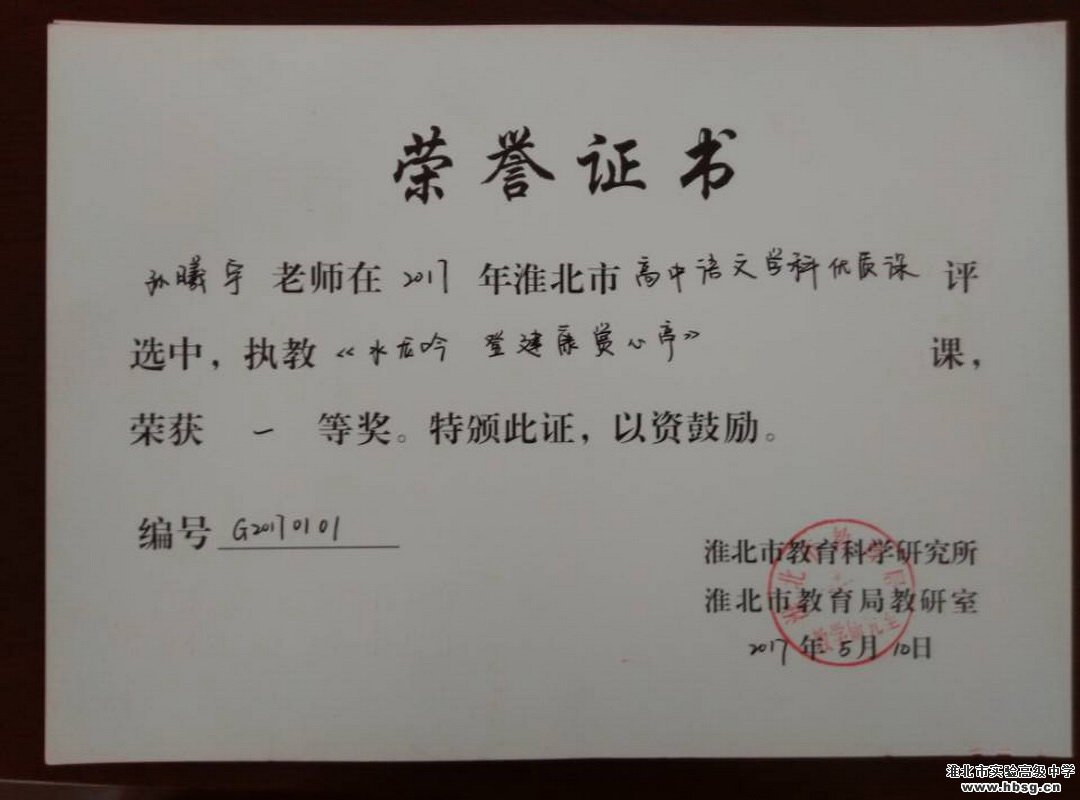 荣誉证书
孙曦宇 老师在 2017 年淮北市 高中语文学科优质课 评
选中，执教《水龙吟 登建康赏心亭》 课，
荣获 一 等奖。特颁此证，以资鼓励。
编号 G20170101
淮北市教育科学研究所
淮北市教育局教研室
2017 年 5 月 10 日
淮北市实验高级中学
www.hbsg.cn